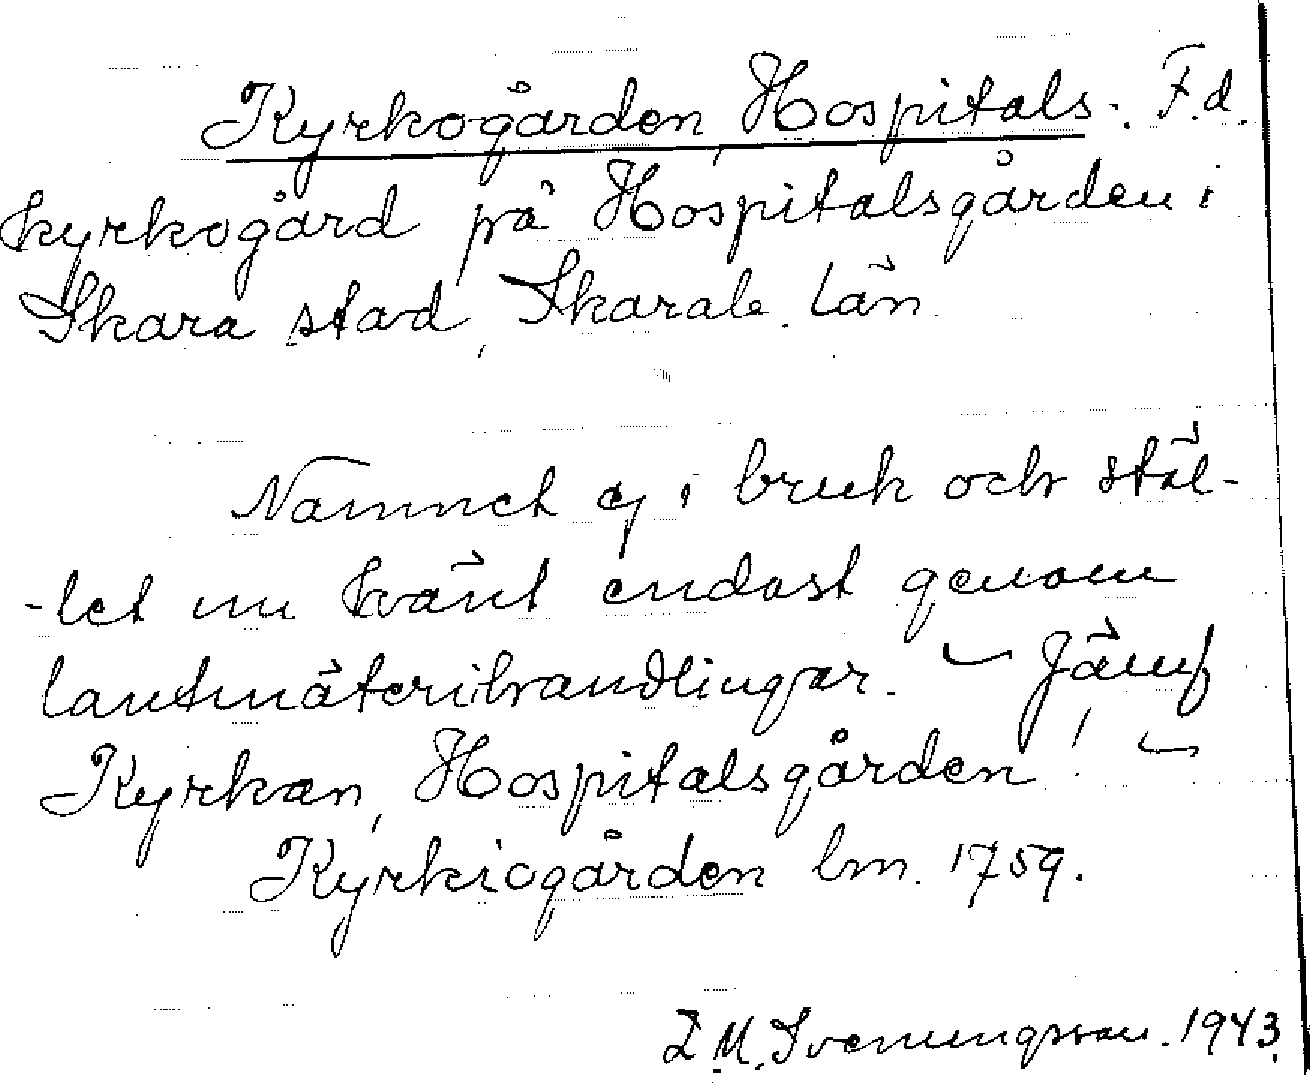 Kyrkogården, Hospitals-. F.d.
kyrkogård på Hospitalsgården i
Skara stad, Skarab. län.
Namnet ej i bruk och stäl-
-let nu känt endast genom
lantmäterihandlingar. – Jämf
Kyrkan, Hospitalsgården! –
Kyrkiogården lm. 1759.
I. M. Svenungsson. 1943.